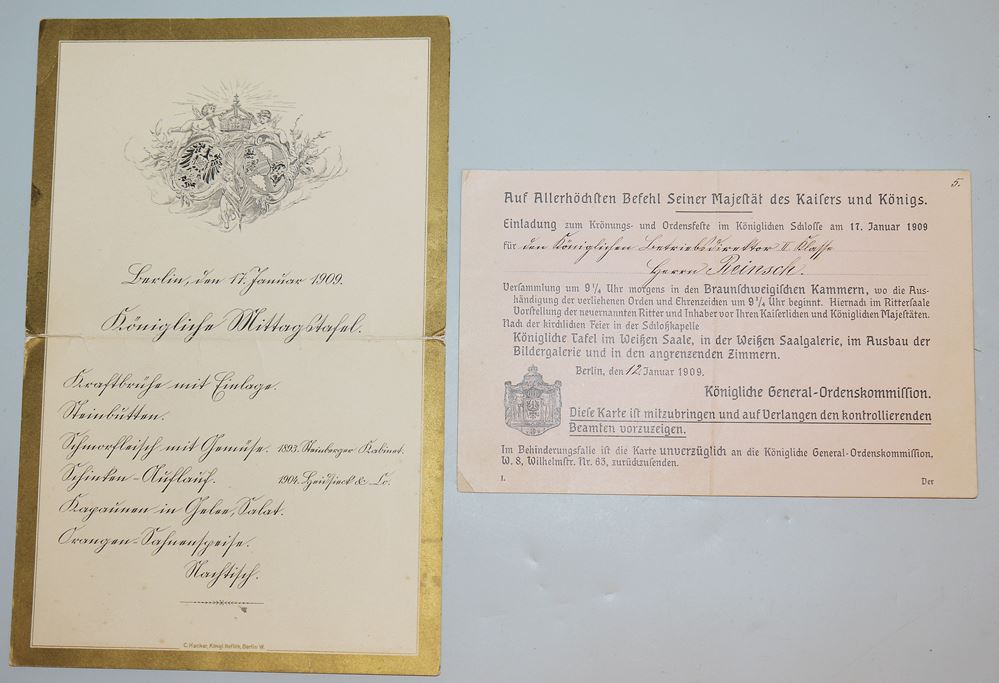 Berlin, den 17. Januar 1909.
Königliche Mittagstafel.
Kraftbrühe mit Einlage.
Steinbutten.
Schmorfleisch mit Gemüse. 1893. Steinberger Kabinet.
Schinken-Auflauf. 1904. Heidsieck & Co.
Kapaunen in Gelee, Salat.
Orangen-Sahnenspeise.
Nachtisch.
C. Hacker, Königl. Hoflith. Berlin W.
5.
Auf Allerhöchsten Befehl Seiner Majestät des Kaisers und Königs.
Einladung zum Krönungs- und Ordensfeste im Königlichen Schlosse am 17. Januar 1909
für den Königlichen Betriebsdirektor II. Klasse
Herrn Reinsch.
Versammlung um 9 1/4 Uhr morgens in den Braunschweigischen Kammern, wo die Aus-
händigung der verliehenen Orden und Ehrenzeichen um 9 3/4 Uhr beginnt. Hiernach im Rittersaale
Vorstellung der neuernannten Ritter und Inhaber vor Ihren Kaiserlichen und Königlichen Majestäten.
Nach der kirchlichen Feier in der Schloßkapelle
Königliche Tafel im Weißen Saale, in der Weißen Saalgalerie, im Ausbau der
Bildergalerie und in den angrenzenden Zimmern.
Berlin, den 12. Januar 1909.
Königliche General-Ordenskommission.
Diese Karte ist mitzubringen und auf Verlangen den kontrollierenden
Beamten vorzuzeigen.
Im Behinderungsfalle ist die Karte unverzüglich an die Königliche General-Ordenskommission,
W. 8, Wilhelmstr. Nr. 63, zurückzusenden.
I. Der